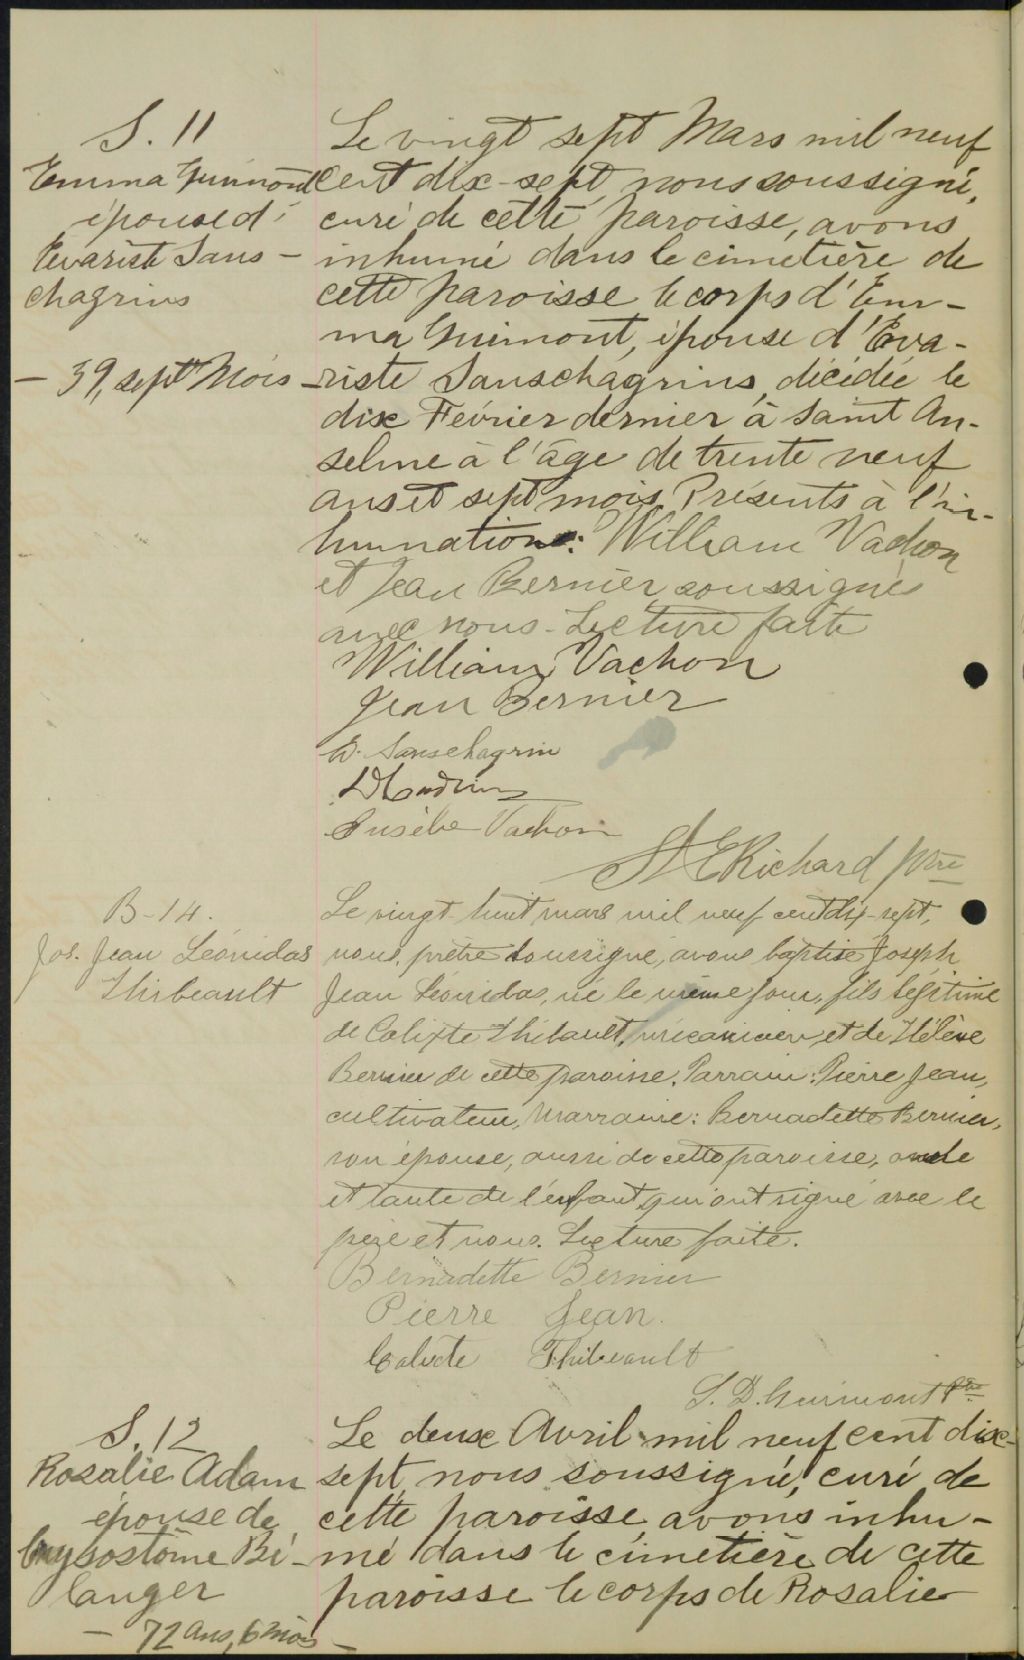 S. 11
Emma Guimont
épouse d'
Evariste Sans-
chagrins
- 39, sept mois -
Le vingt sept Mars mil neuf
cent dix-sept, nous soussigné,
curé de cette paroisse, avons
inhumé dans le cimetière de
cette paroisse le corps d'Em-
ma Guimont, épouse d'Eva-
riste Sanschagrins, décédée le
dix Février dernier à Saint An-
selme à l'âge de trente neuf
ans et sept mois. Présents à l'in-
humation: William Vachon
et Jean Bernier soussignés
avec nous. Lecture faite
William Vachon
Jean Bernier
E. Sanschagrin
Eusèbe Vachon
Richard ptre
B-14.
Jos. Jean Léonidas
Thibeault
Le vingt-huit mars mil neuf cent dix-sept,
nous, prêtre soussigné, avons baptisé Joseph
Jean Léonidas, né le même jour, fils légitime
de Calixte Thibault, mécanicien, et de Hélène
Bernier de cette paroisse. Parrain: Pierre Jean,
cultivateur, Marraine: Bernadette Bernier,
son épouse, aussi de cette paroisse, oncle
et tante de l'enfant, qui ont signé avec le
père et nous. Lecture faite.
Bernadette Bernier
Pierre Jean.
Calixte Thibeault
S. D. Guimont Ptre
S. 12
Rosalie Adam
épouse de
Crysostôme Bé-
langer
- 72 ans, 6 mois -
Le deux Avril mil neuf cent dix-
sept, nous soussigné, curé de
cette paroisse avons inhu-
mé dans le cimetière de cette
paroisse le corps de Rosalie